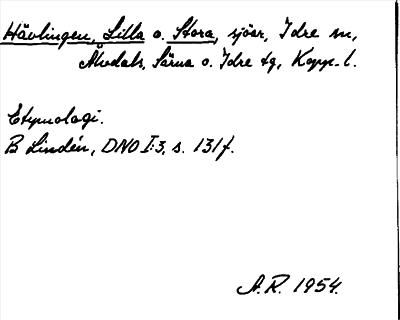 Hävlingen, Lilla o. Stora, sjöar, Idre sn,
Älvdals, Särna o. Idre tg, Kopp. l.
Etymologi.
B Lindén, DNO I:3, s. 131f.
A.R. 1954.